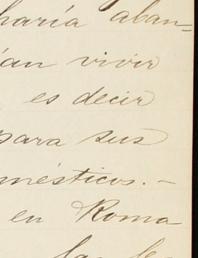 haría aban=
ían vivir
es decir
para sus
mésticos.-
en Roma